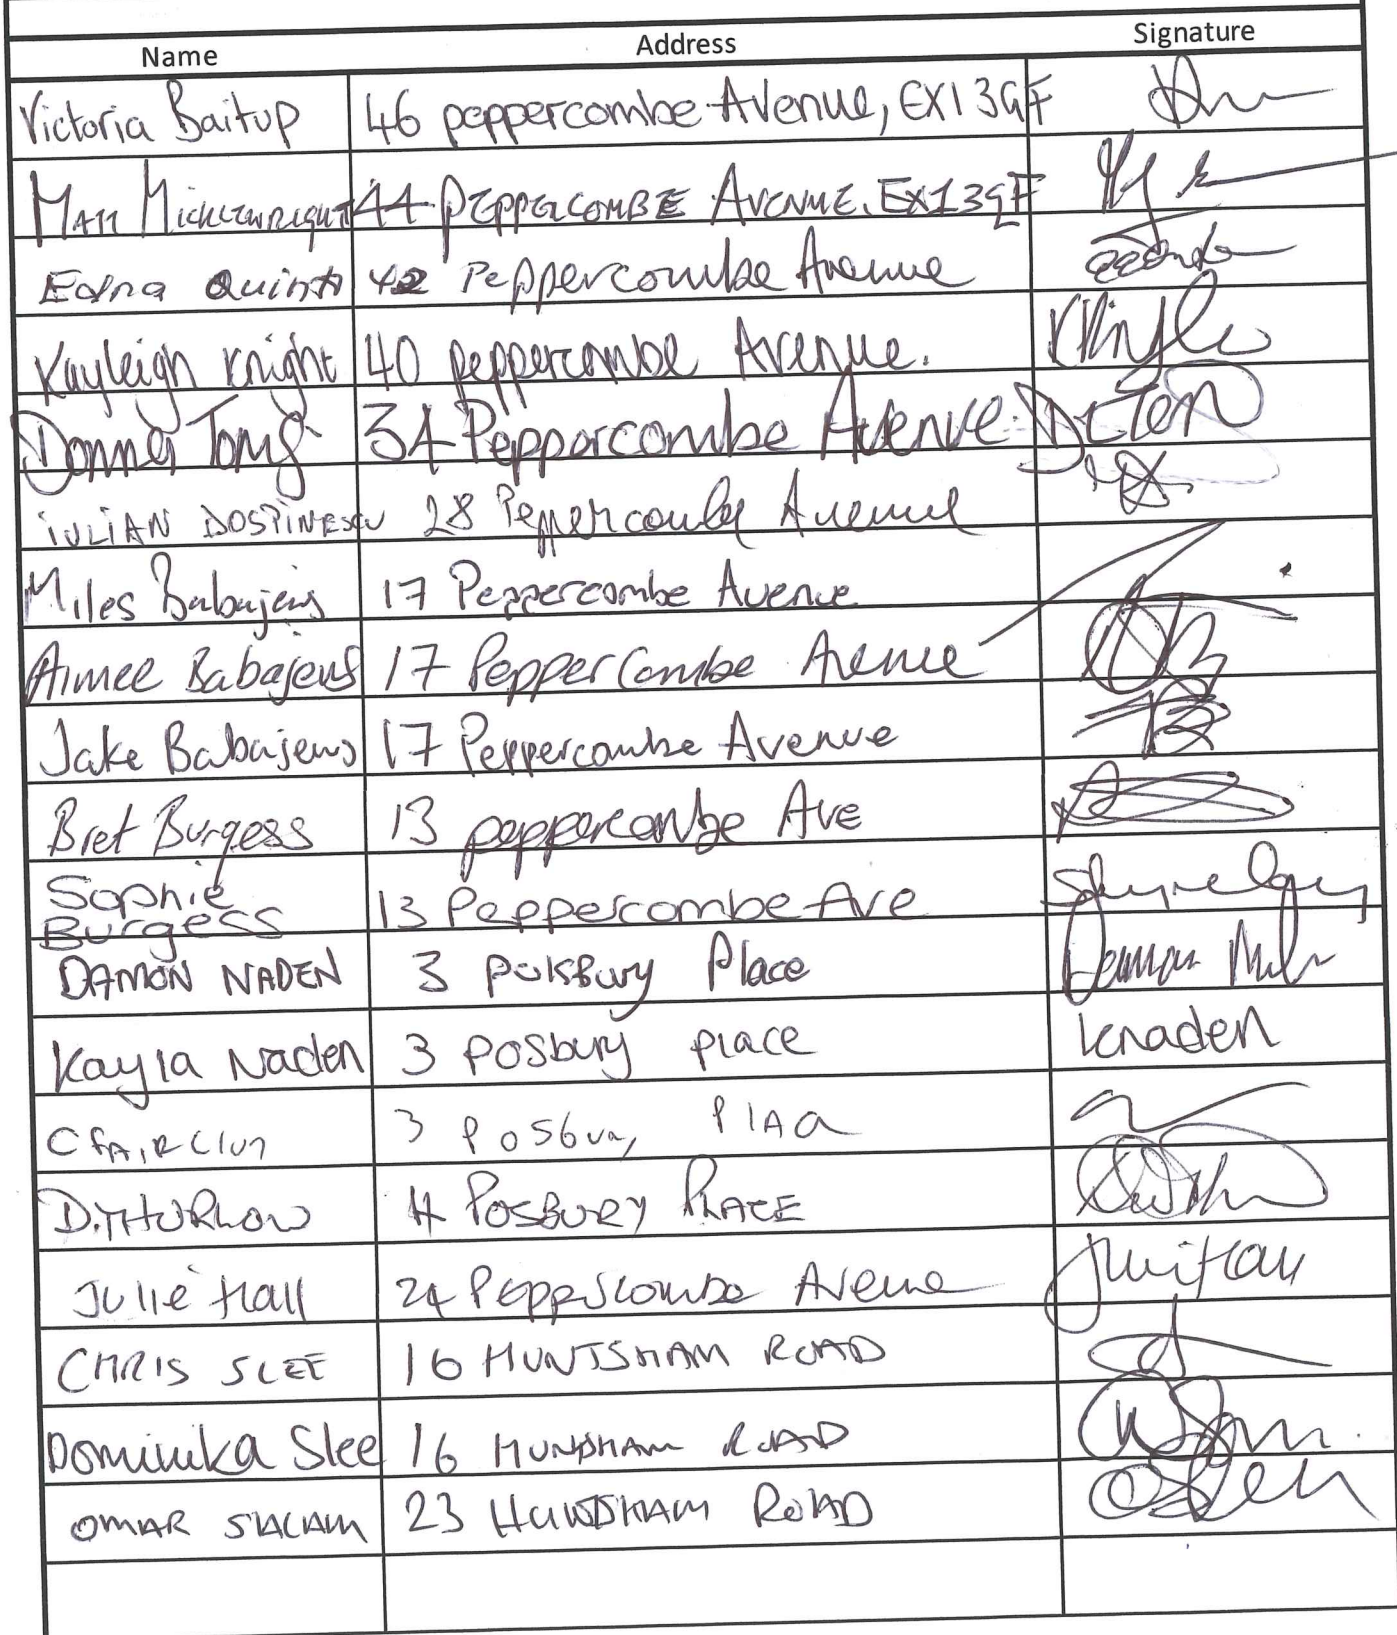 Name Address Signature
Victoria Baitup 46 peppercombe Avenue, EX1 3GF
Matt Micklewright 44 PEPPERCOMBE AVENUE. EX1 3GF
Edna Quinta 42 Peppercombe Avenue
Kayleigh Knight 40 peppercombe Avenue.
Donna Tong 34 Pepporcombe Avenue
iULIAN DOSPINESCU 28 Peppercombe Avenue
Miles Babajews 17 Peppercombe Avenue
Aimee Babajews 17 PepperCombe Avenue
Jake Babajews 17 Peppercombe Avenue
Bret Burgess 13 peppercombe Ave
Sophie
Burgess 13 Peppercombe Ave
DAMON NADEN 3 Poksbury Place
Kayla Naden 3 Posbury place knaden
C 3 Posbury
D.THURLOW 4 POSBURY PLACE
Julie Hall 24 Avenue
CHRIS SLEE 16 HUNTSHAM ROAD
Dominika Slee 16 HUNTSHAM ROAD
OMAR SALAM 23 HUNTSHAM ROAD